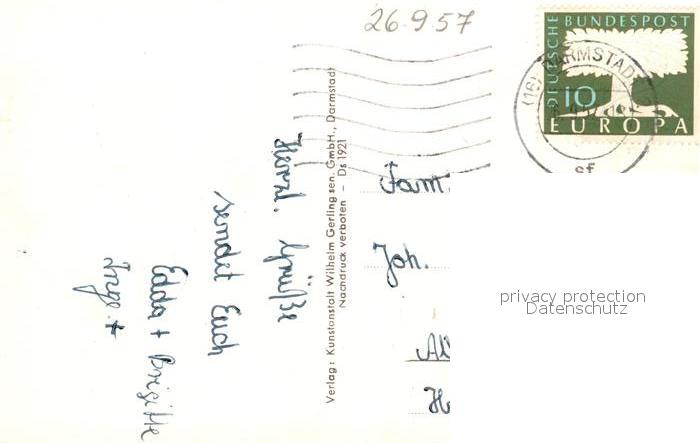 26.9.57
DEUTSCHE BUNDESPOST
10
EUROPA
(16) DARMSTADT
sf
Herzl. Grüße
sendet Euch
Edda + Brigitte
Inge. +
Verlag: Kunstanstalt Wilhelm Gerling sen. GmbH., Darmstadt
Nachdruck verboten - Ds 1921
Fam.
Joh.
privacy protection
Datenschutz